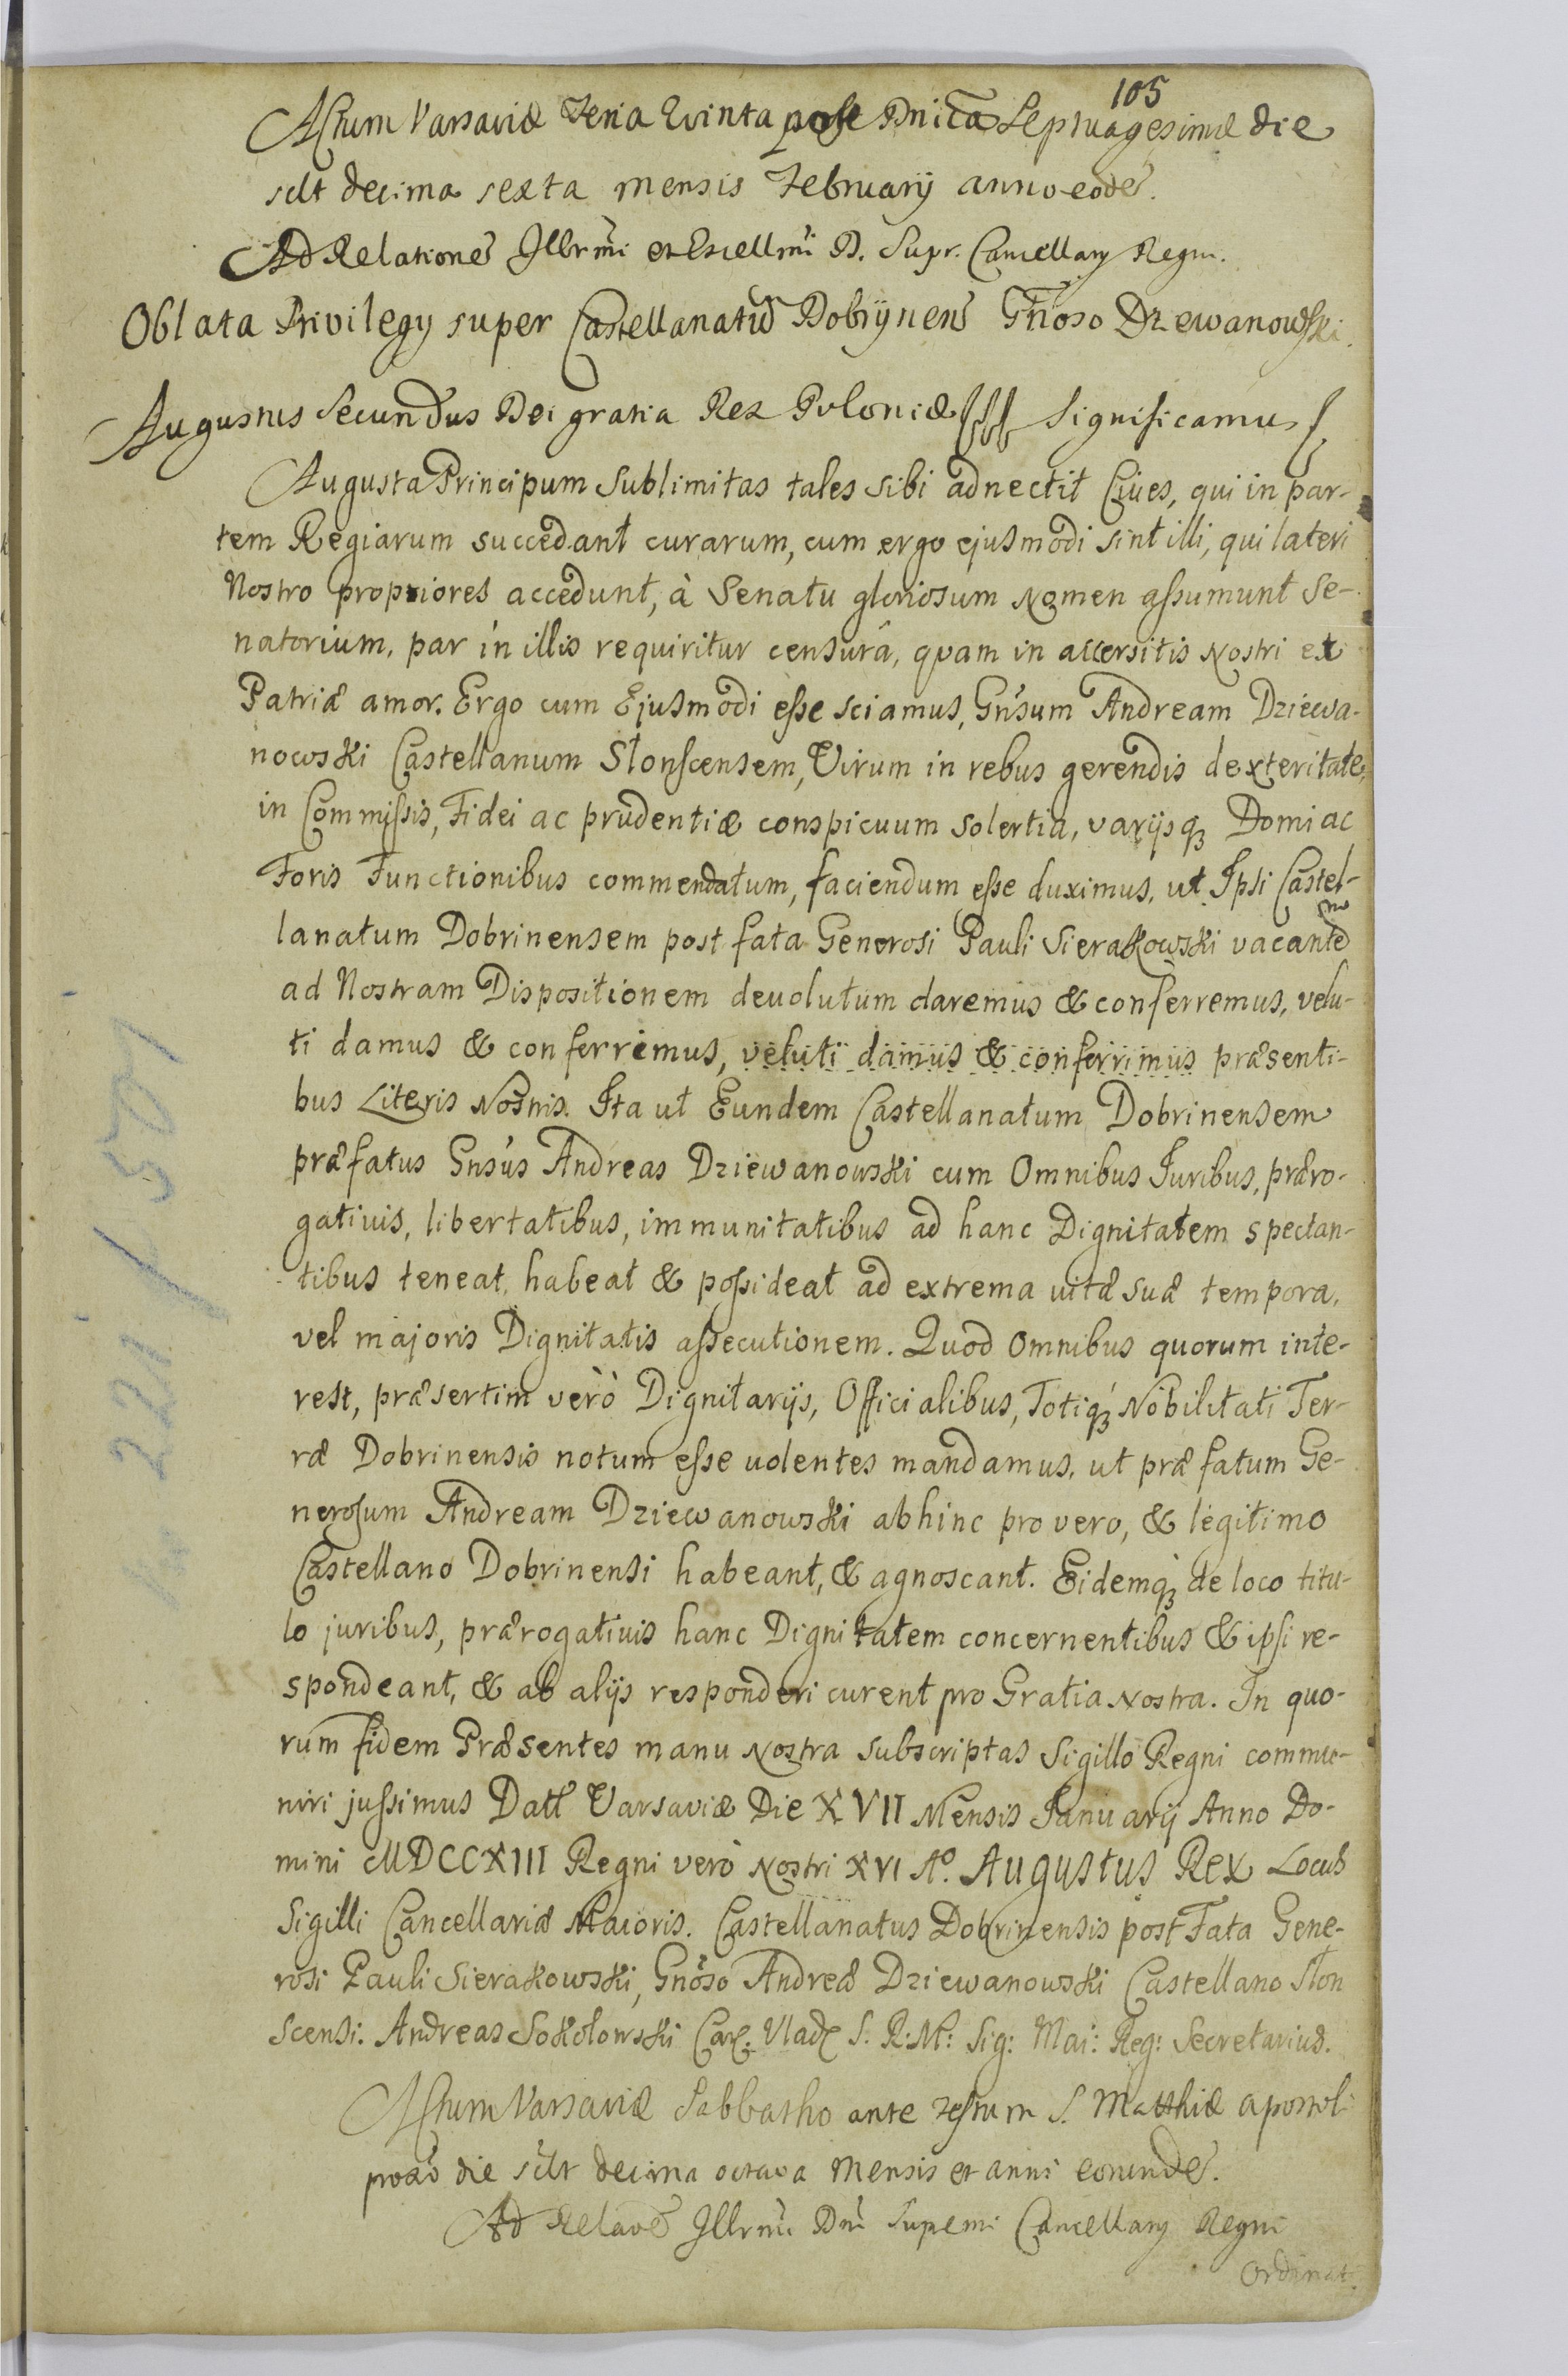 105
Actum Varsaviæ Feria Qvinta post Dnicã Septuagesimæ die
scilt decima sexta mensis February anno eodẽ.
Ad Relationẽ Illrmi et Excellmi D. Supr. Cancellary Regni.
Oblata Privilegy super Castellanatũ Dobrÿnens Gnoso Dzewanowski.
Augustus Secundus Dei gratia Rex Poloniæ significamus
Augusta Principum Sublimitas tales sibi adnectit Ciues, qui in par-
tem Regiarum succedant curarum, cum ergo ejusmodi sint illi, qui lateri
Nostro propriores accedunt, à Senatu gloriosum Nomen assumunt Se-
natorium, par in illis requiritur censura, quam in accersitis Nostri et
Patriæ amor. Ergo cum Ejusmodi esse sciamus, Gnsum Andream Dziewa-
nowski Castellanum Slonscensem, Virum in rebus gerendis dexteritate,
in Commissis, Fidei ac prudentiæ conspicuum solertia, varijsq Domi ac
Foris Functionibus commendatum, faciendum esse duximus, ut Ipsi Castel-
lanatum Dobrinensem post fata Generosi Pauli Sierakowski vacante
ad Nostram Dispositionem deuolutum daremus & conferremus, velu-
ti damus & conferrimus, veluti damus & conferrimus præsenti-
bus Literis Nostris. Ita ut Eundem Castellanatum Dobrinensem
præfatus Gnsus Andreas Dziewanowski cum Omnibus Juribus, præro-
gatiuis, libertatibus, immunitatibus ad hanc Dignitatem spectan-
tibus teneat, habeat & possideat ad extrema uitæ suæ tempora,
vel majoris Dignitatis assecutionem. Quod Omnibus quorum inte-
rest, præsertim verò Dignitarijs, Officialibus, Totiq Nobilitati Ter-
ræ Dobrinensis notum esse uolentes mandamus, ut præfatum Ge-
nerosum Andream Dziewanowski abhinc pro vero, & legitimo
Castellano Dobrinensi habeant, & agnoscant. Eidemq de loco titu-
lo juribus, prærogatiuis hanc Dignitatem concernentibus & ipsi re-
spondeant, & ab alijs responderi curent pro Gratia Nostra. In quo-
rum fidem Præsentes manu Nostra subscriptas Sigillo Regni commu-
niri jussimus Datt Varsaviæ Die XVII Mensis Januarij Anno Do-
mini MDCCXIII Regni verò Nostri XVI Aº. Augustus Rex Locus
Sigilli Cancellariæ Maioris. Castellanatus Dobrinensis post Fata Gene-
rosi Pauli Sierakowski, Gnoso Andreæ Dziewanowski Castellano Slon
scensi. Andreas Sokołowski S. R: M: Sig: Mai: Reg: Secretarius.
Actum Varsaviæ Sabbatho ante Festum S. Matthiæ apostoli
proxo die scilt decima octava Mensis et anni eorundẽ.
Ad Relaoẽ Illrmi Dni Supremi Cancellary Regni
Ordinat.